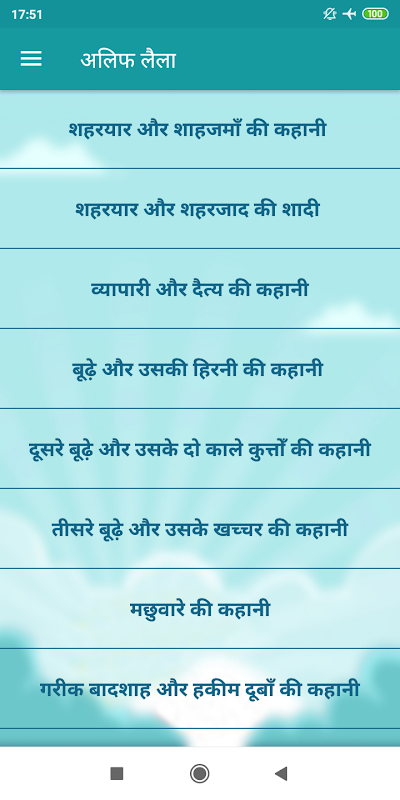 17:51
100
अलिफ लैला
शहरयार और शाहजमाँ की कहानी
शहरयार और शहरजाद की शादी
व्यापारी और दैत्य की कहानी
बूढ़े और उसकी हिरनी की कहानी
दूसरे बूढ़े और उसके दो काले कुत्तोँ की कहानी
तीसरे बूढ़े और उसके खच्चर की कहानी
मछुवारे की कहानी
गरीक बादशाह और हकीम दूबाँ की कहानी